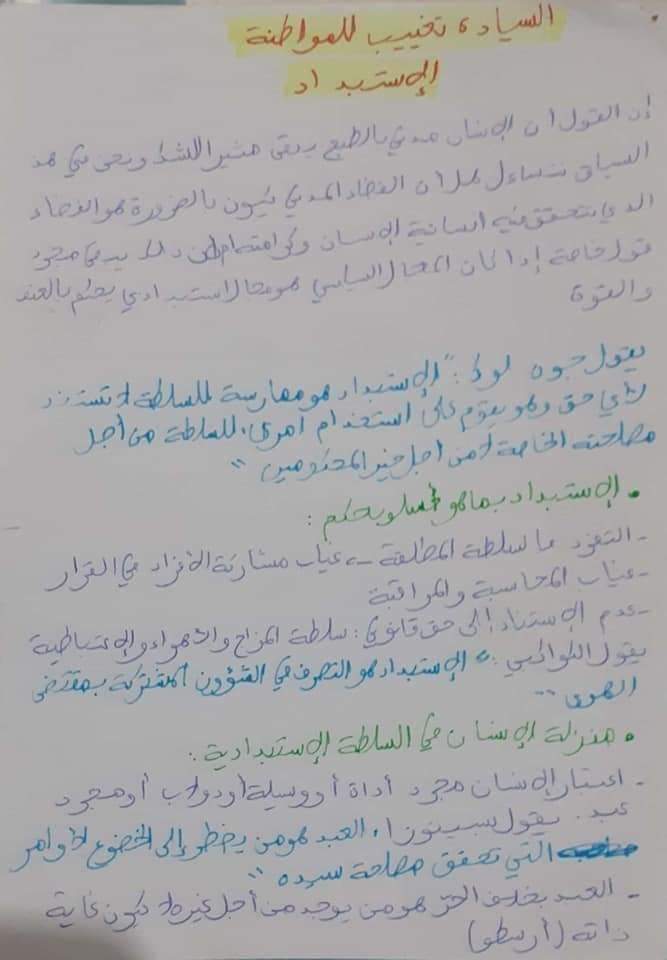 السيادة تغييب للمواطنة
الإستبداد
إن القول أن الإنسان مدني بالطبع يبقى مثيرا للشك ونحن في هذ
السياق نتساءل هل أن الفضاء المدني يكون بالضرورة هو الفضاء
الذي تتحقق فيه انسانية الإنسان وكرامته أم أن ذلك يبقى مجرد
قول خاصة إذا كان المجال السياسي هو مجال استبدادي يحكم بالعنف
والقوة
يقول جون لوك: "الإستبداد هو ممارسة للسلطة لا تستند
لأي حق وهو يقوم على استخدام امرئ للسلطة من أجل
مصلحته الخاصة لا من أجل خير المحكومين"
• الإستبداد بما هو أسلوب حكم:
- التفرد بالسلطة المطلقة ← غياب مشاركة الأفراد في القرار
- غياب المحاسبة والمراقبة
- عدم الإستناد إلى حق قانوني: سلطة المزاج والأهواء والإعتباطية
يقول الكواكبي: "الإستبداد هو التصرف في الشؤون المشتركة بمقتضى
الهوى"
• منزلة الإنسان في السلطة الإستبدادية:
- اعتبار الإنسان مجرد أداة أو وسيلة أو دولاب أو مجرد
عبد. يقول سبينوزا "العبد هو من يضطر إلى الخضوع لأوامر
التي تحقق مصلحة سيده"
- العبد بخلاف الحر هو من يوجد من أجل غيره لا يكون غاية
ذاته (أرسطو)